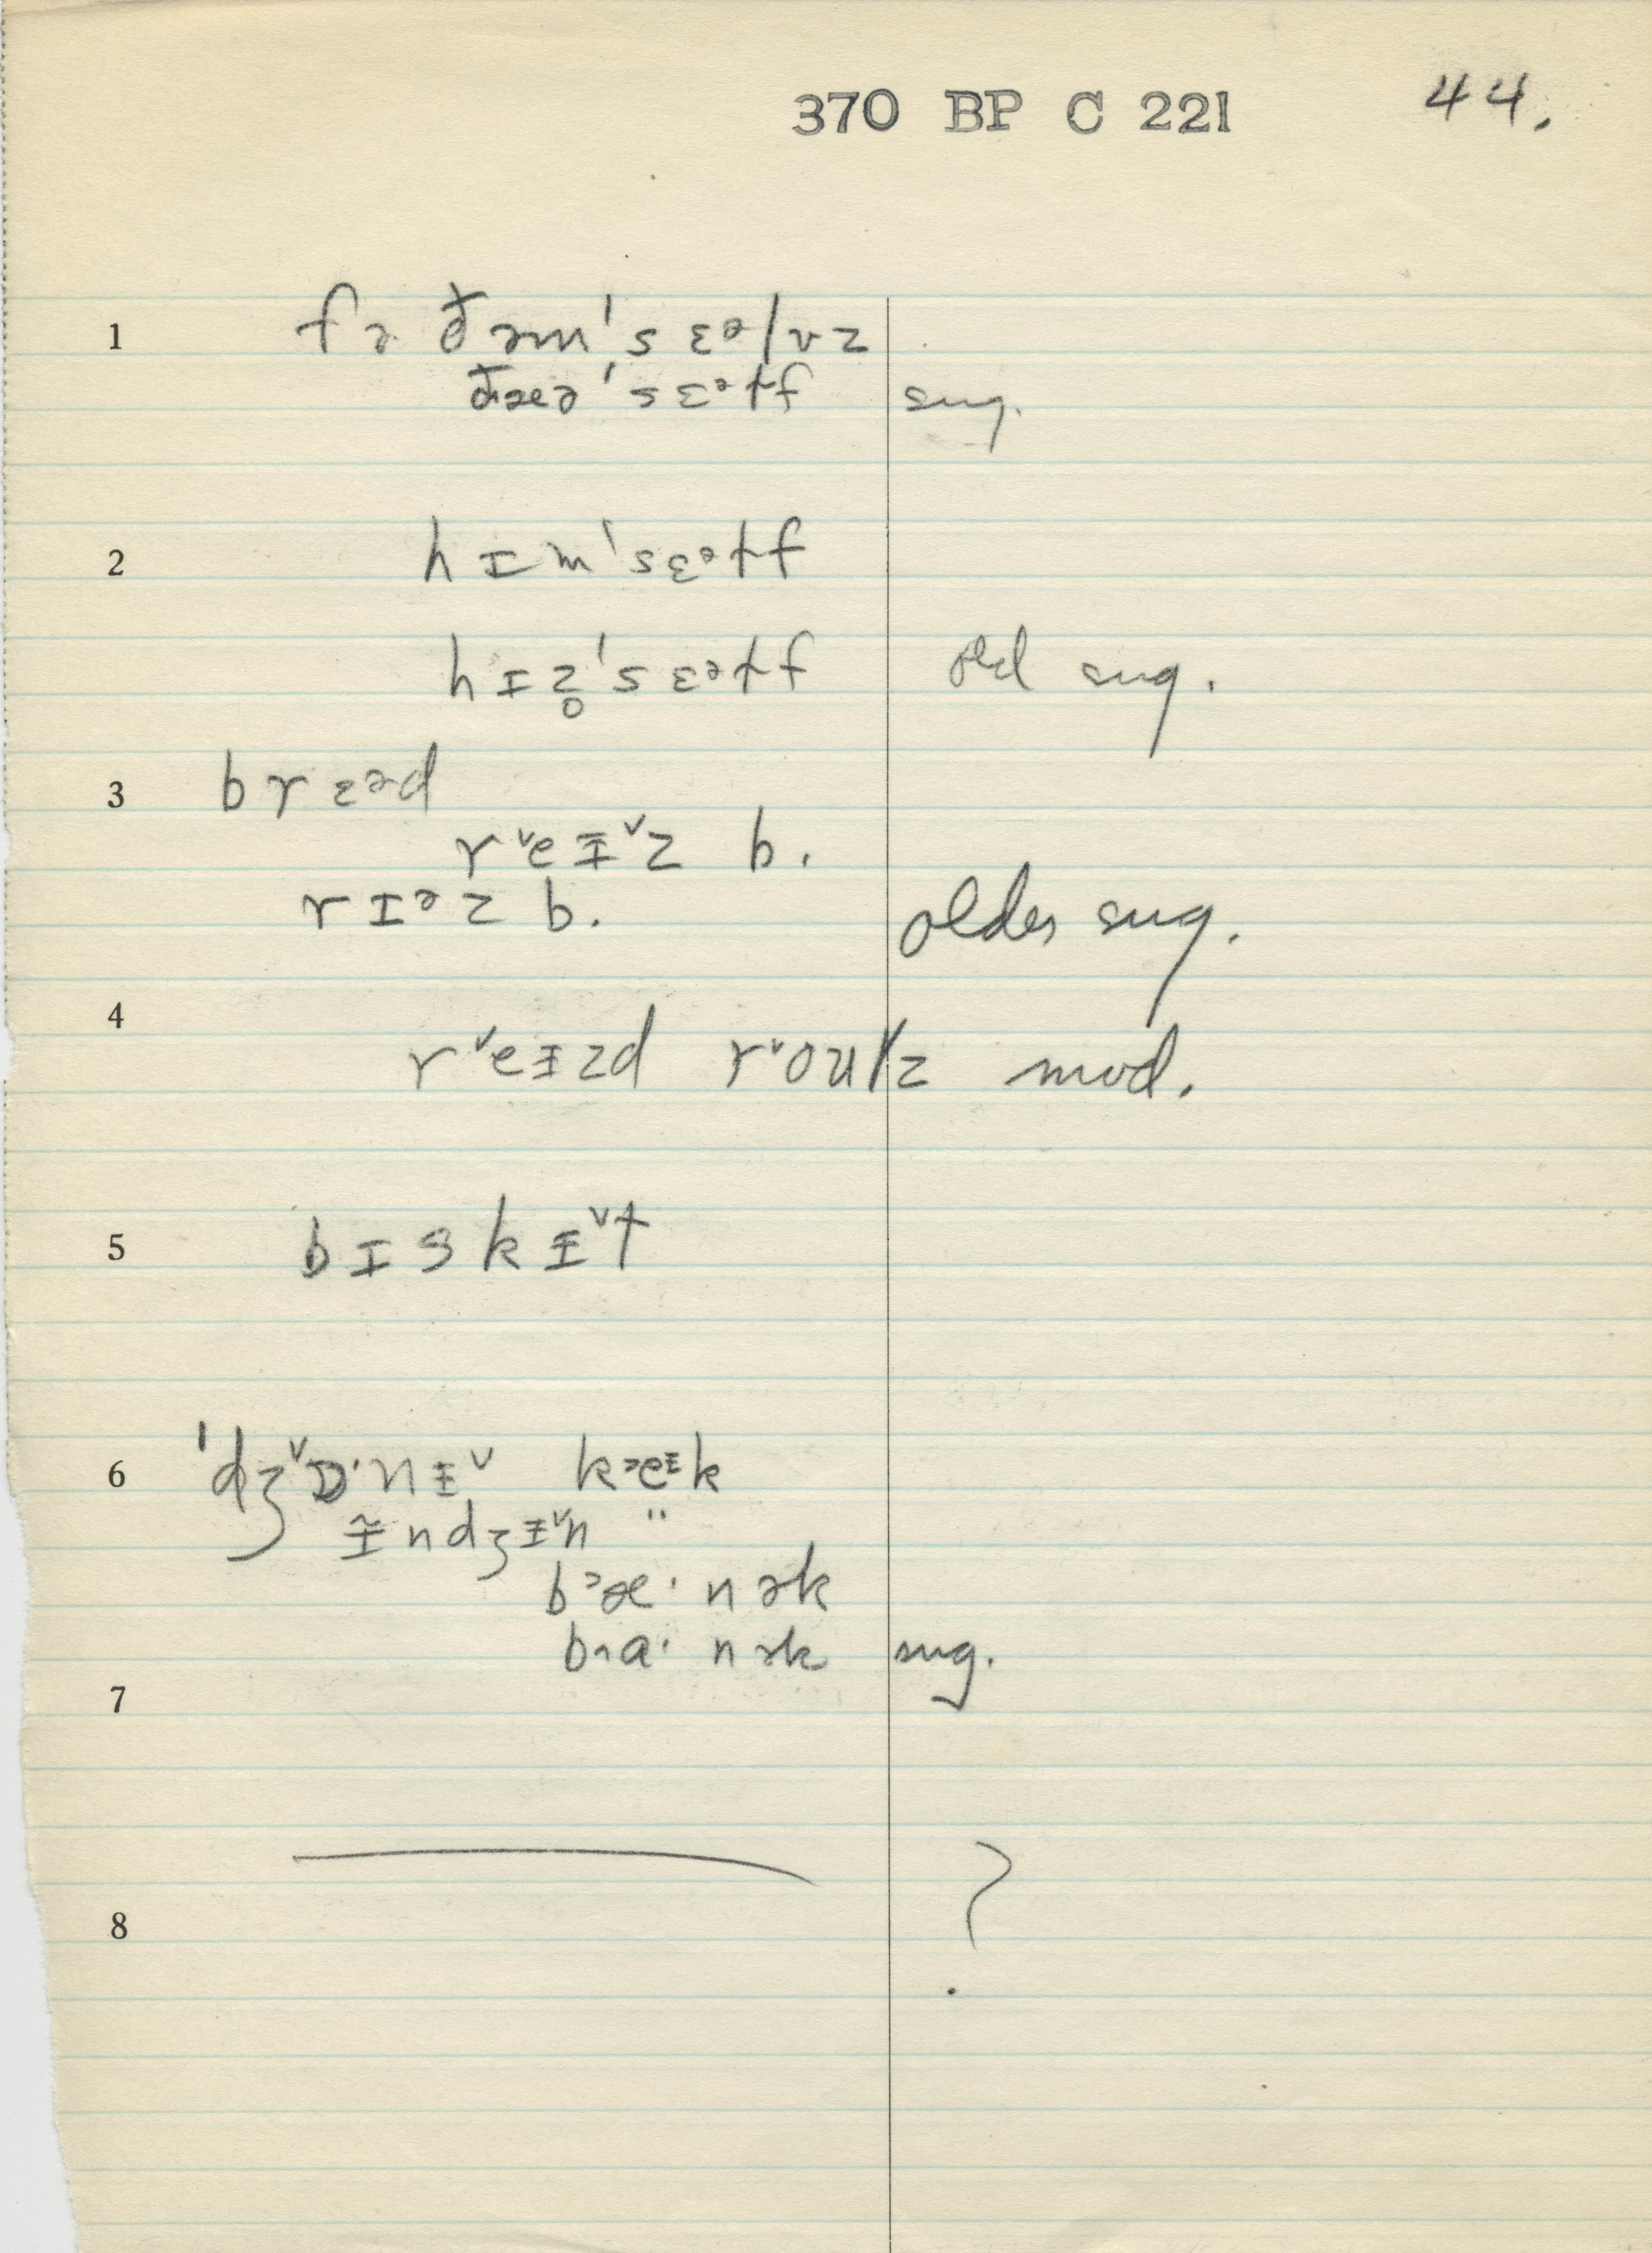 370 BP C 221 44.
1 fə ðəm'sɛᵊlvz
ðæə'sɛᵊɫf sug.
2 hɪm'sɛᵊɫf
hɪz̥'sɛᵊɫf old sug.
3 brɛᵊd
r˅eɪ˅z b.
rɪᵊz b. older sug.
4 r˅eɪzd r˅oulz mod.
5 bɪskɪ˅t
6 'dʒ˅ɒ·nɪ˅ k˃eᶦk
ɪ̃ndʒɪ˅n "
b˃æ·nək
b˄a·nək sug.
7
8 ?